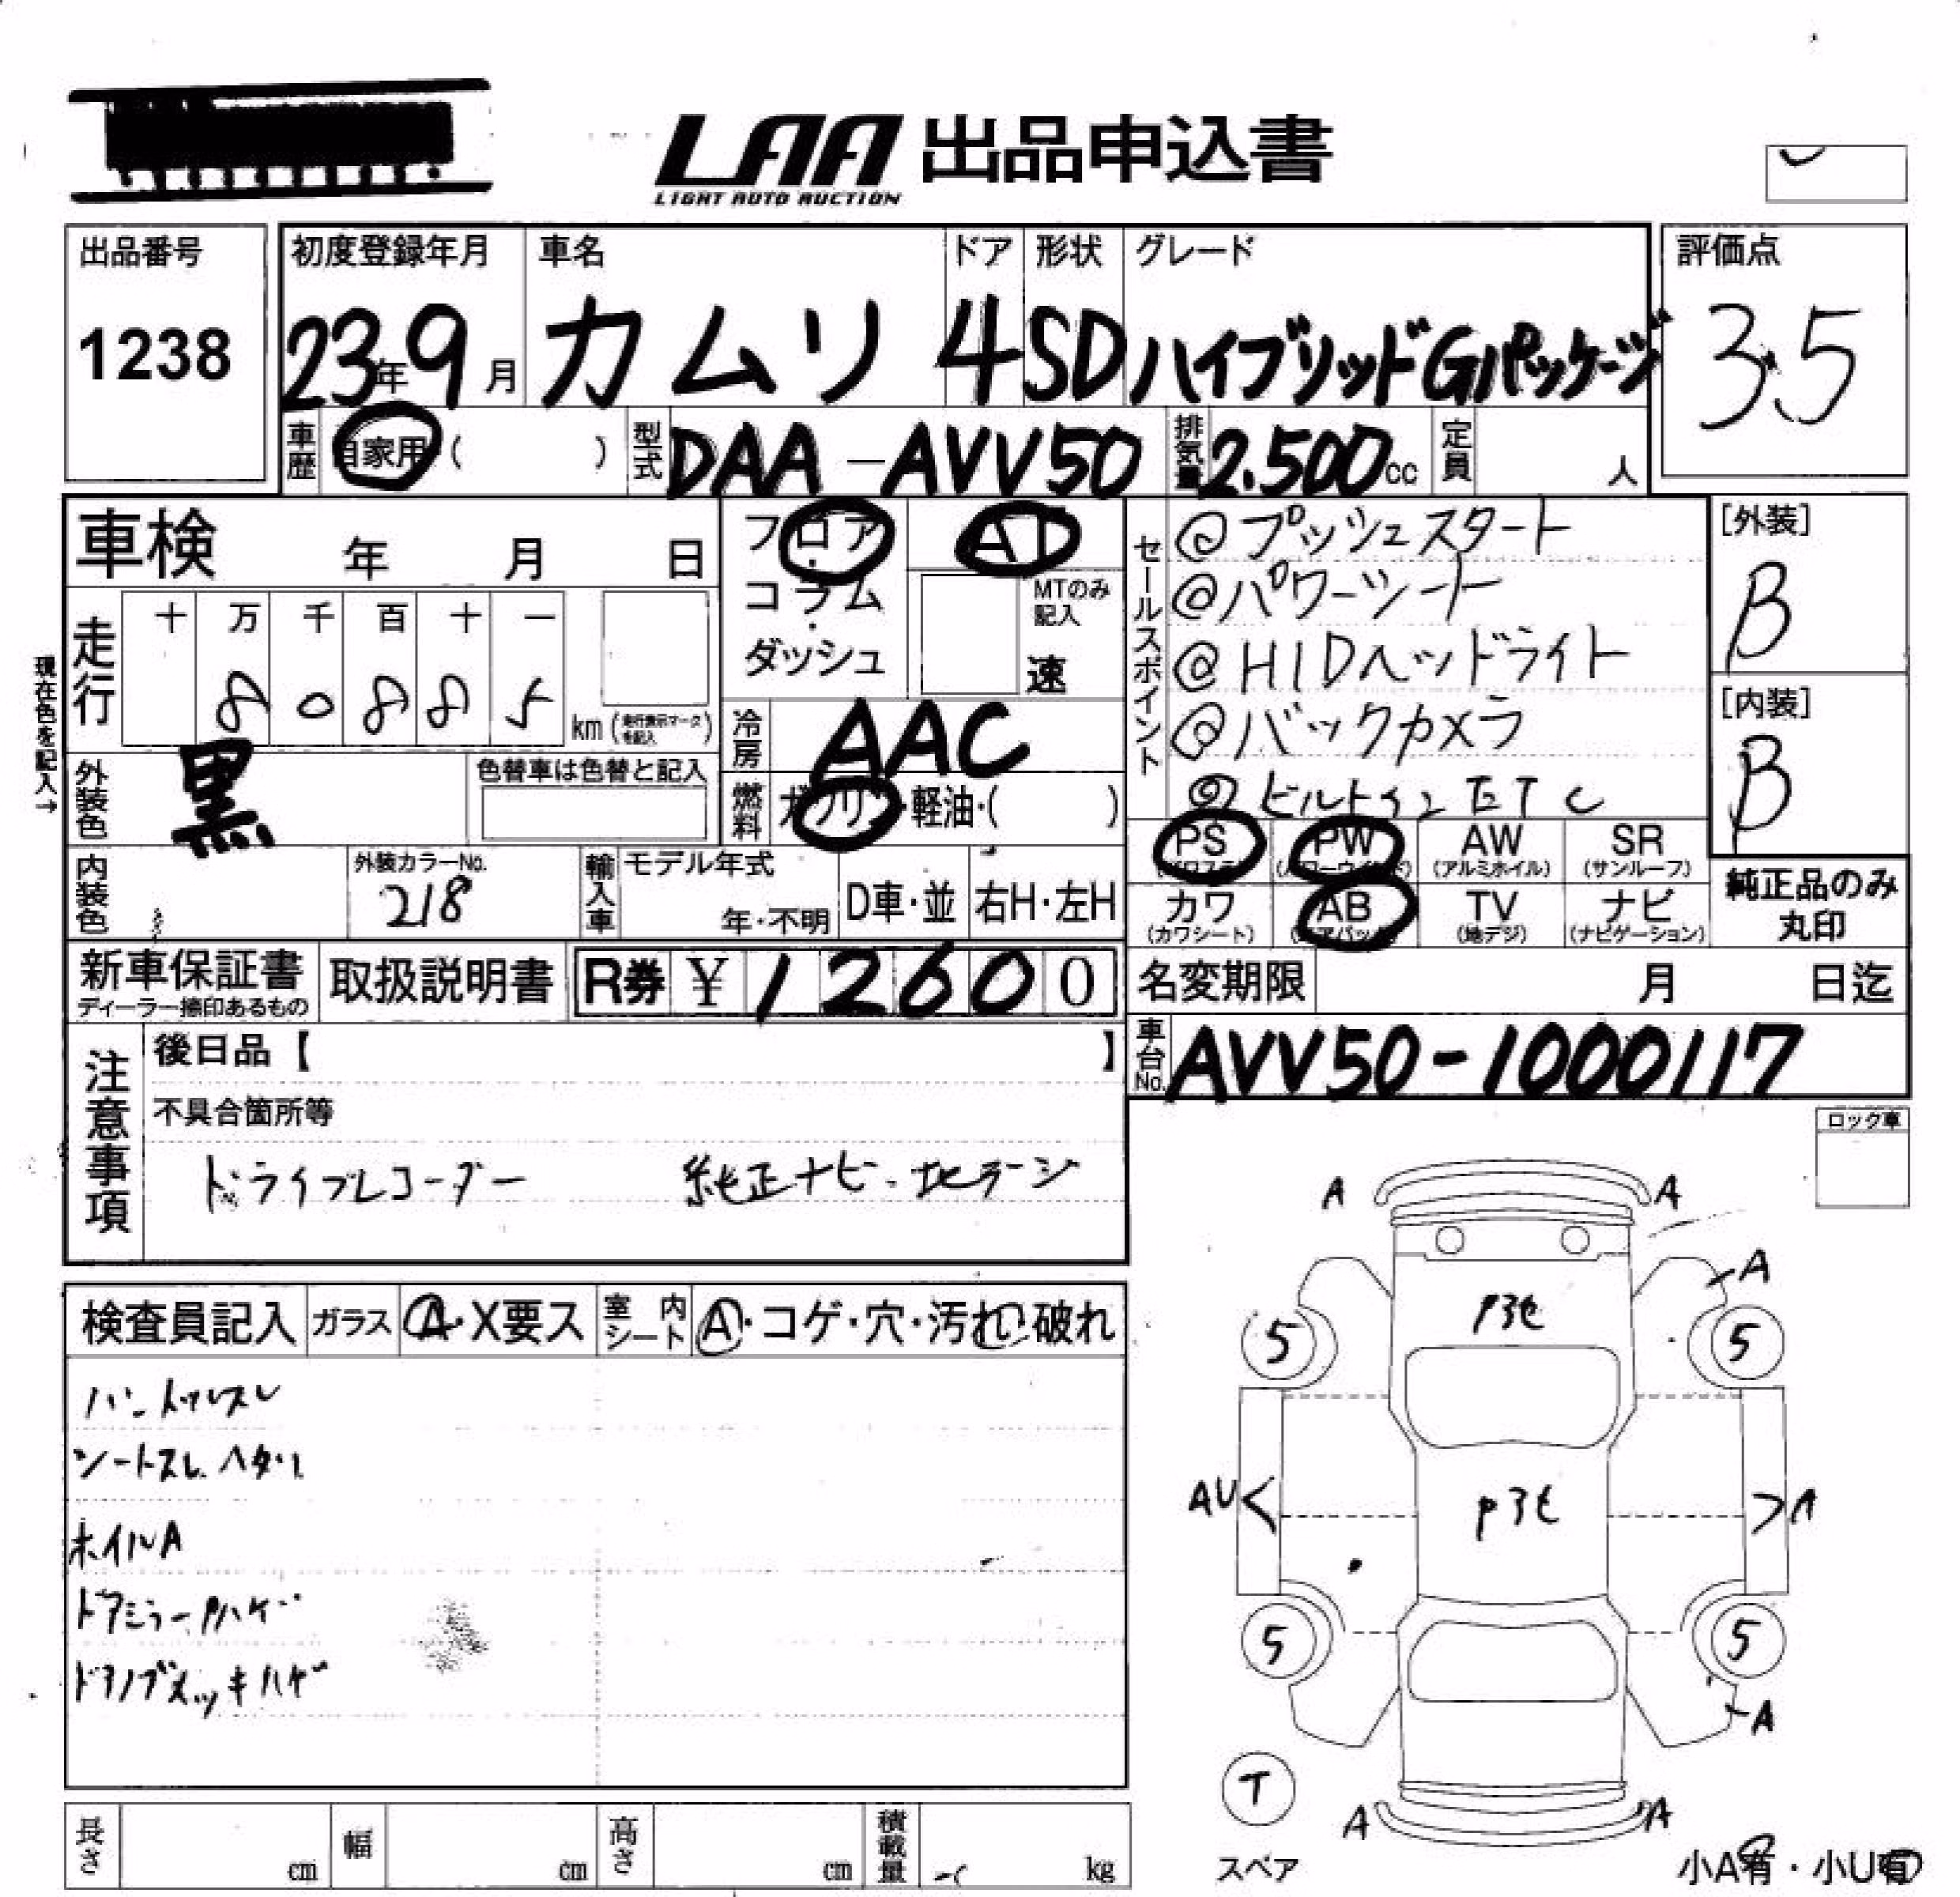 LAA 出品申込書
LIGHT AUTO AUCTION
出品番号 初度登録年月 車名 ドア 形状 グレード 評価点
1238 23年9月 カムリ 4 SD ハイブリッドGパッケージ 3.5
車歴 自家用 ( ) 型式 DAA-AVV50 排気量 2.500cc 定員 人
車検 年 月 日
フロア・コラム・ダッシュ
AT
MTのみ記入
速
セールスポイント
@プッシュスタート
@パワーシート
@HIDヘッドライト
@バックカメラ
@ビルトインETC
[外装]
B
[内装]
B
現在色を記入→
走行 十 万 千 百 十 一
8 0 8 8 5 km (走行表示マークを記入)
冷房 AAC
外装色 黒 色替車は色替と記入
燃料 ガソリン・軽油・( )
PS (パワステ) PW (パワーウインド) AW (アルミホイル) SR (サンルーフ)
カワ (カワシート) AB (エアバック) TV (地デジ) ナビ (ナビゲーション)
純正品のみ
丸印
内装色 外装カラーNo. 218 輸入車 モデル年式 年・不明 D車・並 右H・左H
新車保証書 ディーラー捺印あるもの 取扱説明書 R券 ¥ 12600
名変期限 月 日迄
車台No. AVV50-1000117
注意事項
後日品【 】
不具合箇所等
ドライブレコーダー 純正ナビ・地デジ
ロック車
検査員記入 ガラス A・X要ス 室内シート A・コゲ・穴・汚れ・破れ
ハンドルスレ
シートスレ ヘタリ
ホイルA
ドアミラーPハゲ
ドアノブメッキハゲ
A A
A
P3セ
5 5
AU A
P3セ
5 5
A
T
スペア
A A
小A有・小U有
長さ cm 幅 cm 高さ cm 積載量 kg